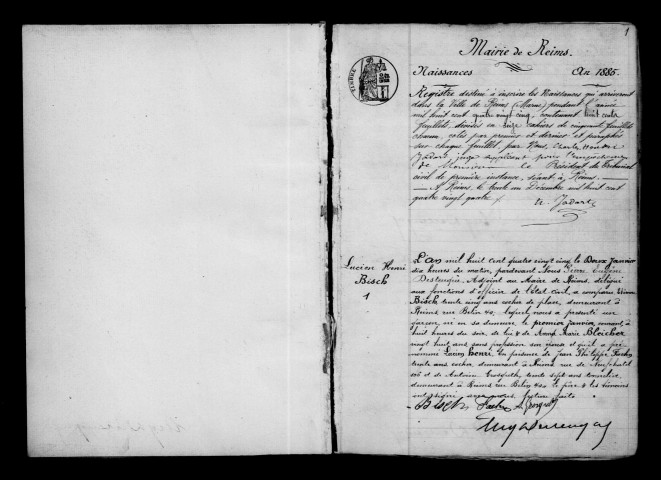 1
Mairie de Reims.
Naissances An 1885.
TIMBRE
Registre destiné à inscrire les Naissances qui arriveront
dans la Ville de Reims (Marne) pendant l'année
mil huit cent quatre vingt cinq, contenant huit cents
feuillets, divisés en seize cahiers de cinquante feuillets
chacun, cotés par premier et dernier et paraphés
sur chaque feuillet, par Nous, Charles Hendri
Jadart, juge suppléant pour l'empêchement
de Monsieur le Président du Tribunal
civil de première instance, séant à Reims.
A Reims, le trente un Décembre mil huit cent
quatre vingt quatre
H. Jadart
Lucien Henri
Bisch
1
L'an mil huit cent quatre vingt cinq le Deux Janvier
dix heures du matin, pardevant Nous Pierre Eugène
Adjoint au Maire de Reims, délégué
aux fonctions d'officier de l'état civil, a comparu
Bisch trente cinq ans cocher de place, demeurant à
Reims rue Belin 40, lequel nous a présenté un
garçon, né en sa demeure le premier janvier courant, à
huit heures du soir, de lui & de Marie Bleicher
vingt huit ans sans profession son épouse et qu'il a pré-
nommé Lucien henri. En présence de Jean Philippe
trente ans cocher, demeurant à Reims rue de Neufchatel
et de Antoine trente sept ans
demeurant à Reims rue Belin 40. Le père & les témoins
ont signé avec nous, lecture faite
Bisch